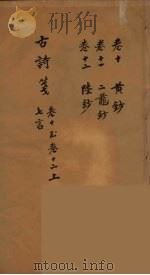 卷十　黄鈔
卷十一　二晁鈔
卷十二　陸鈔
古詩箋
卷十至卷十二上
七言